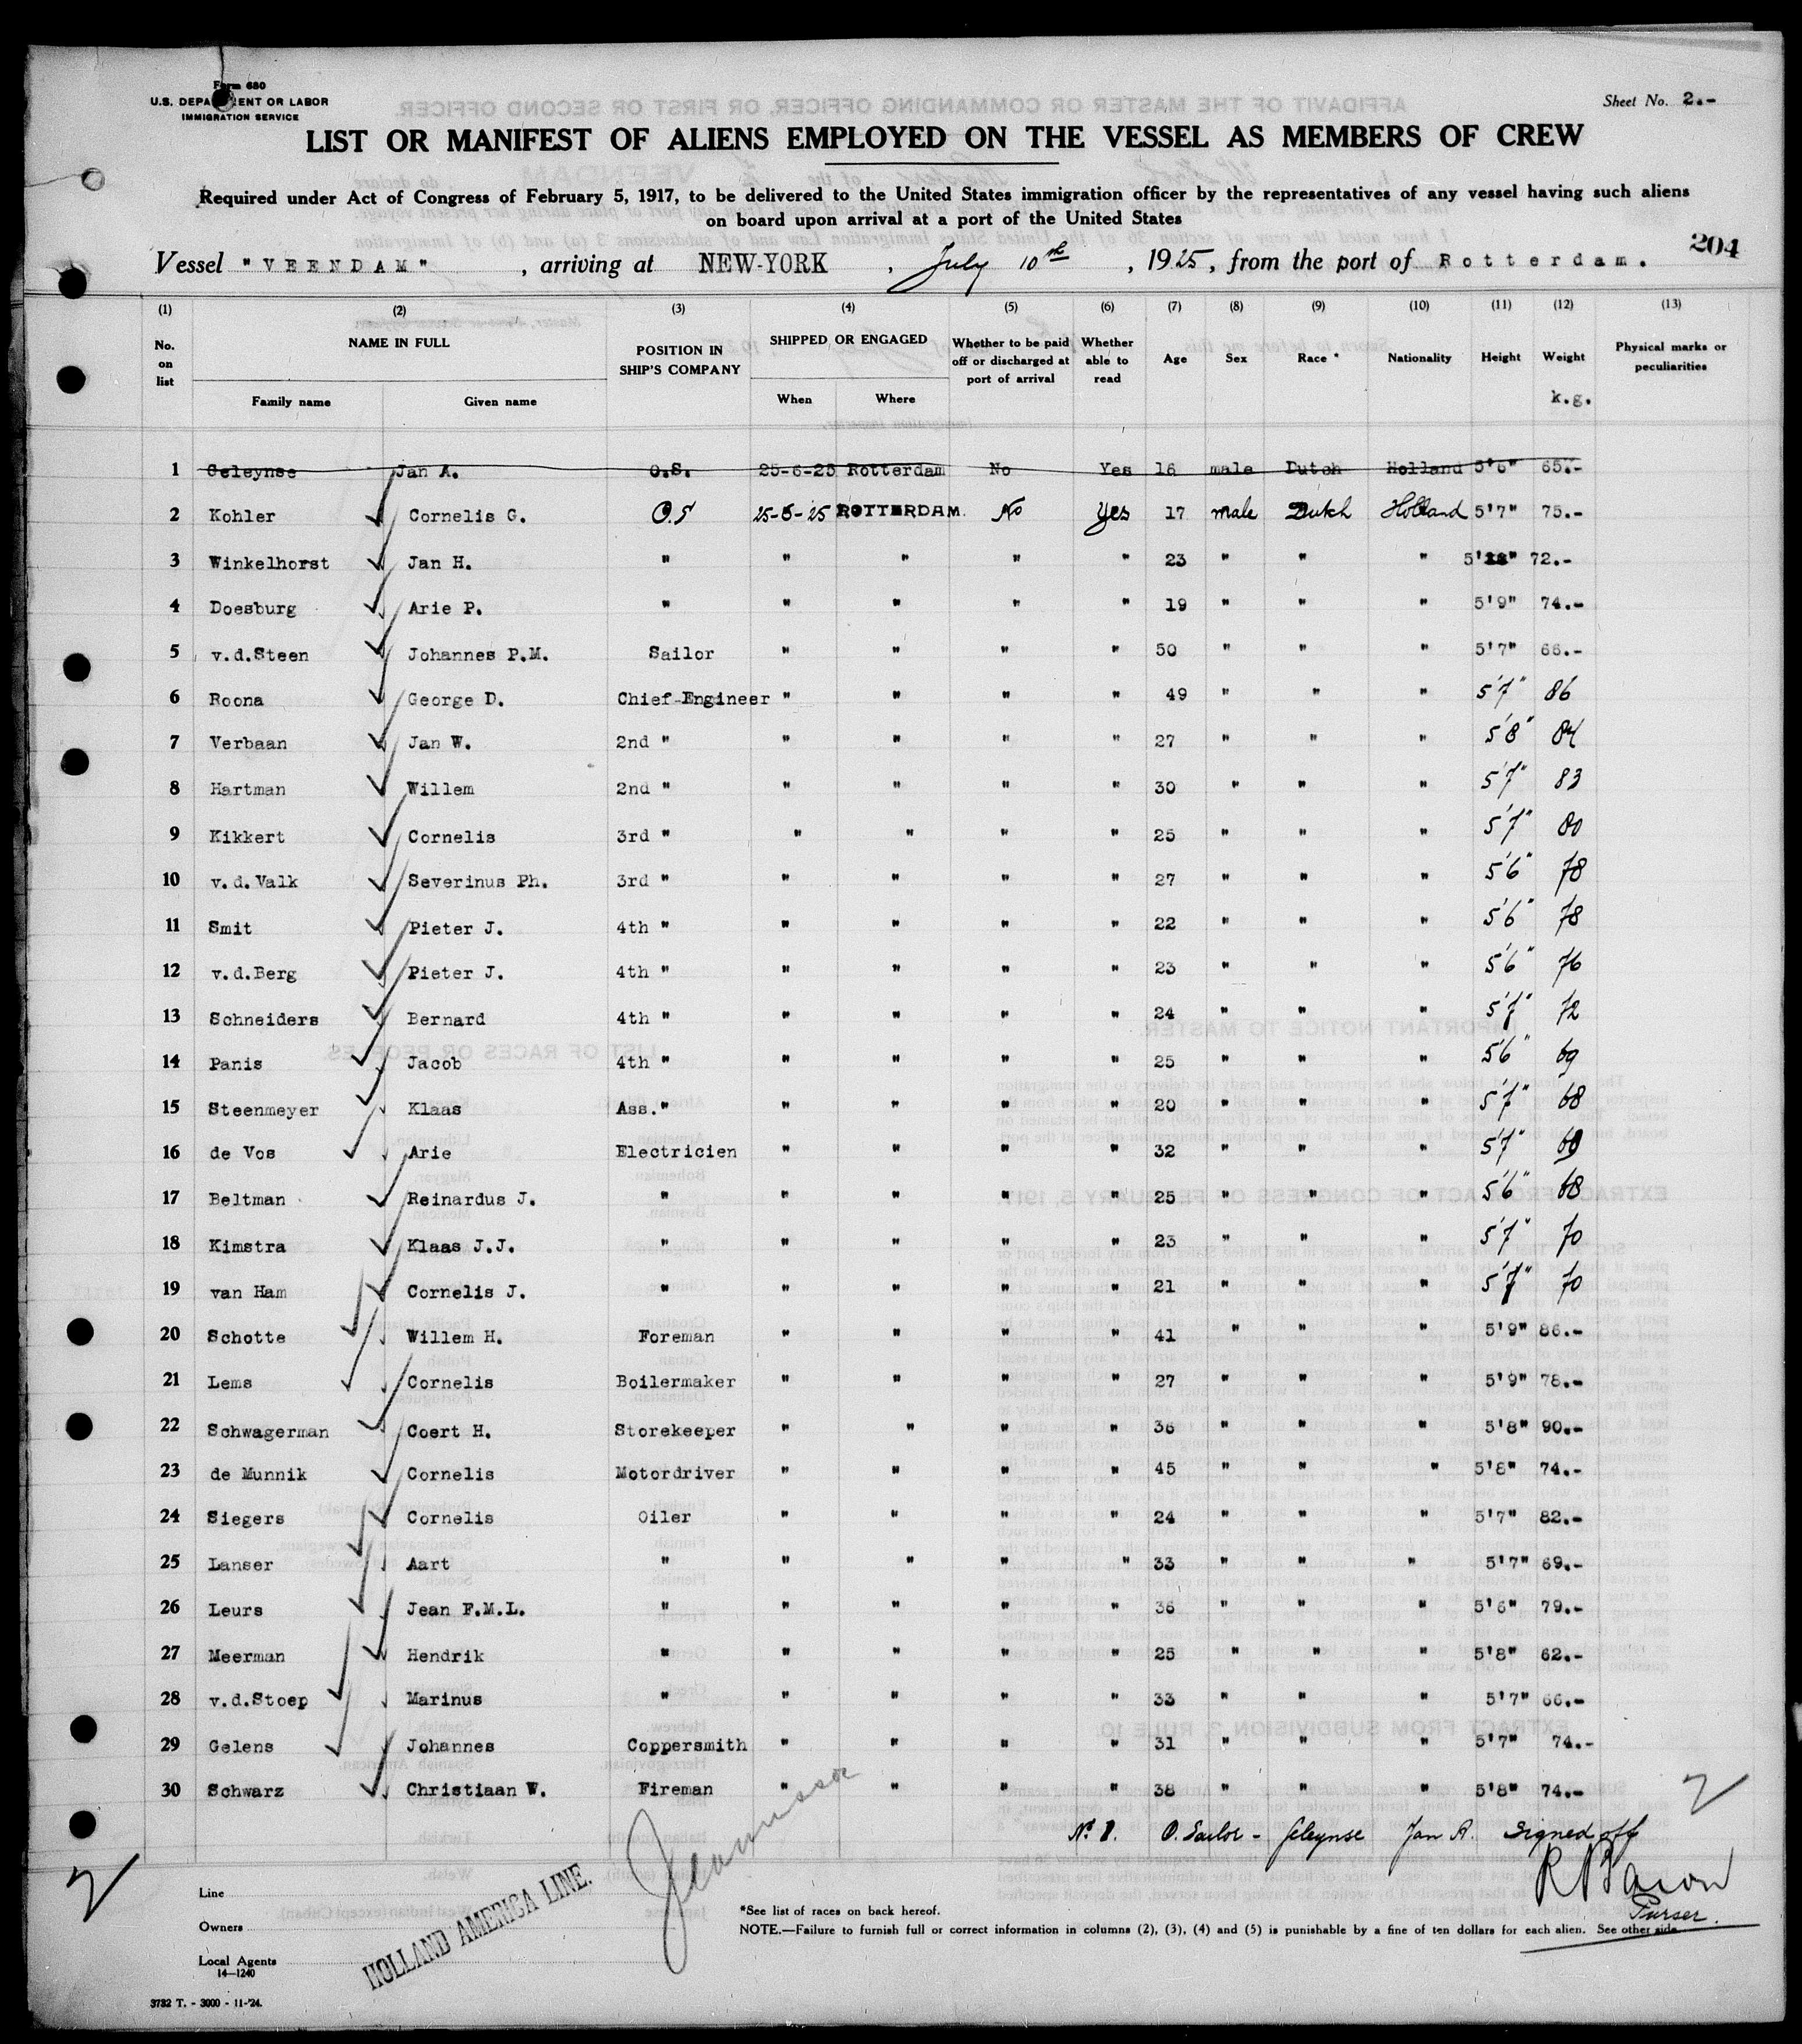 Form 680
U.S. DEPARTMENT OR LABOR
IMMIGRATION SERVICE
Sheet No. 2.-
LIST OR MANIFEST OF ALIENS EMPLOYED ON THE VESSEL AS MEMBERS OF CREW
Required under Act of Congress of February 5, 1917, to be delivered to the United States immigration officer by the representatives of any vessel having such aliens
on board upon arrival at a port of the United States
204
Vessel "VEENDAM", arriving at NEW-YORK, July 10th, 1925, from the port of Rotterdam.
(1) (2) (3) (4) (5) (6) (7) (8) (9) (10) (11) (12) (13)
No. on list NAME IN FULL Family name Given name POSITION IN SHIP'S COMPANY SHIPPED OR ENGAGED When Where Whether to be paid off or discharged at port of arrival Whether able to read Age Sex Race * Nationality Height Weight k.g. Physical marks or peculiarities
1 Geleynse Jan A. O.S. 25-6-25 Rotterdam No Yes 16 male Dutch Holland 5'6" 65.-
2 Kohler Cornelis G. O.S 25-6-25 ROTTERDAM No Yes 17 male Dutch Holland 5'7" 75.-
3 Winkelhorst Jan H. " " " " " 23 " " " 72.-
4 Doesburg Arie P. " " " " " 19 " " " 5'9" 74.-
5 v.d.Steen Johannes P.M. Sailor " " " " 50 " " " 5'7" 66.-
6 Roona George D. Chief-Engineer " " " " 49 " " " 5'7" 86
7 Verbaan Jan W. 2nd " " " " " 27 " " " 5'8" 84
8 Hartman Willem 2nd " " " " " 30 " " " 5'7" 83
9 Kikkert Cornelis 3rd " " " " " 25 " " " 5'7" 80
10 v.d.Valk Severinus Ph. 3rd " " " " " 27 " " " 5'6" 78
11 Smit Pieter J. 4th " " " " " 22 " " " 5'6" 78
12 v.d.Berg Pieter J. 4th " " " " " 23 " " " 5'6" 76
13 Schneiders Bernard 4th " " " " " 24 " " " 5'7" 72
14 Panis Jacob 4th " " " " " 25 " " " 5'6" 69
15 Steenmeyer Klaas Ass. " " " " " 20 " " " 5'7" 68
16 de Vos Arie Electricien " " " " 32 " " " 5'7"
17 Beltman Reinardus J. " " " " " 25 " " " 5'6" 68
18 Kimstra Klaas J.J. " " " " " 23 " " " 5'7" 70
19 van Ham Cornelis J. " " " " " 21 " " " 5'7" 70
20 Schotte Willem H. Foreman " " " " 41 " " " 5'9" 86.-
21 Lems Cornelis Boilermaker " " " " 27 " " " 5'9" 78.-
22 Schwagerman Coert H. Storekeeper " " " " 36 " " " 5'8" 90.-
23 de Munnik Cornelis Motordriver " " " " 45 " " " 5'8" 74.-
24 Siegers Cornelis Oiler " " " " 24 " " " 5'7" 82.-
25 Lanser Aart " " " " " 33 " " " 5'7" 69.-
26 Leurs Jean F.M.L. " " " " " 36 " " " 5'6" 79.-
27 Meerman Hendrik " " " " " 25 " " " 5'8" 62.-
28 v.d.Stoep Marinus " " " " " 33 " " " 5'7" 66.-
29 Gelens Johannes Coppersmith " " " " 31 " " " 5'7" 74.-
30 Schwarz Christiaan W. Fireman " " " " 38 " " " 5'8" 74.-
No. 1. O. Sailor - Geleynse Jan A. Signed off
Purser.
Line
Owners
Local Agents
HOLLAND AMERICA LINE.
14-1240
*See list of races on back hereof.
NOTE.—Failure to furnish full or correct information in columns (2), (3), (4) and (5) is punishable by a fine of ten dollars for each alien. See other side
3732 T. - 3000 - 11-'24.